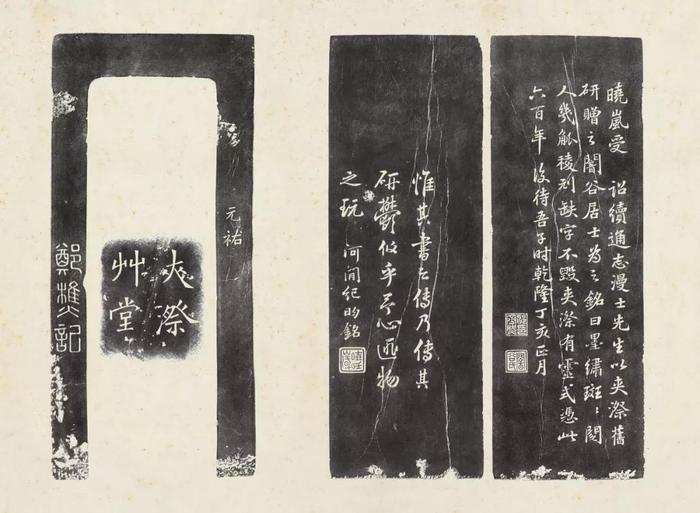 曉嵐受 詔續通志漫士先生以夾漈舊
研贈之闇谷居士為之銘曰墨繡斑〻閱
人幾觚稜刓缺字不毀夾漈有靈式憑此
六百年後待吾子時乾隆丁亥正月
惟其書之傳乃傳其
研鬱攸乎予心匪物
之玩 河間紀昀銘
元祐
夾漈
艸堂
鄭樵記